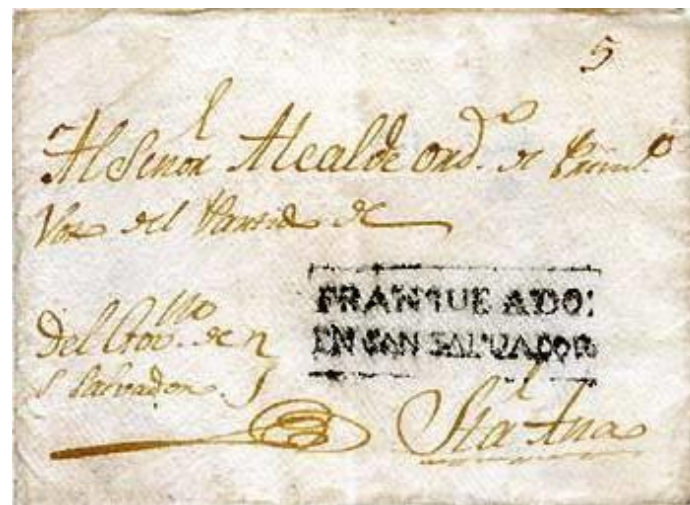 5
Al Señor Alcalde ord.º de Prim.º
Voto del Partido de
FRANQUEADO:
EN SAN SALUADOR
Del Gov.no de
S. Salvador.
Sta Ana